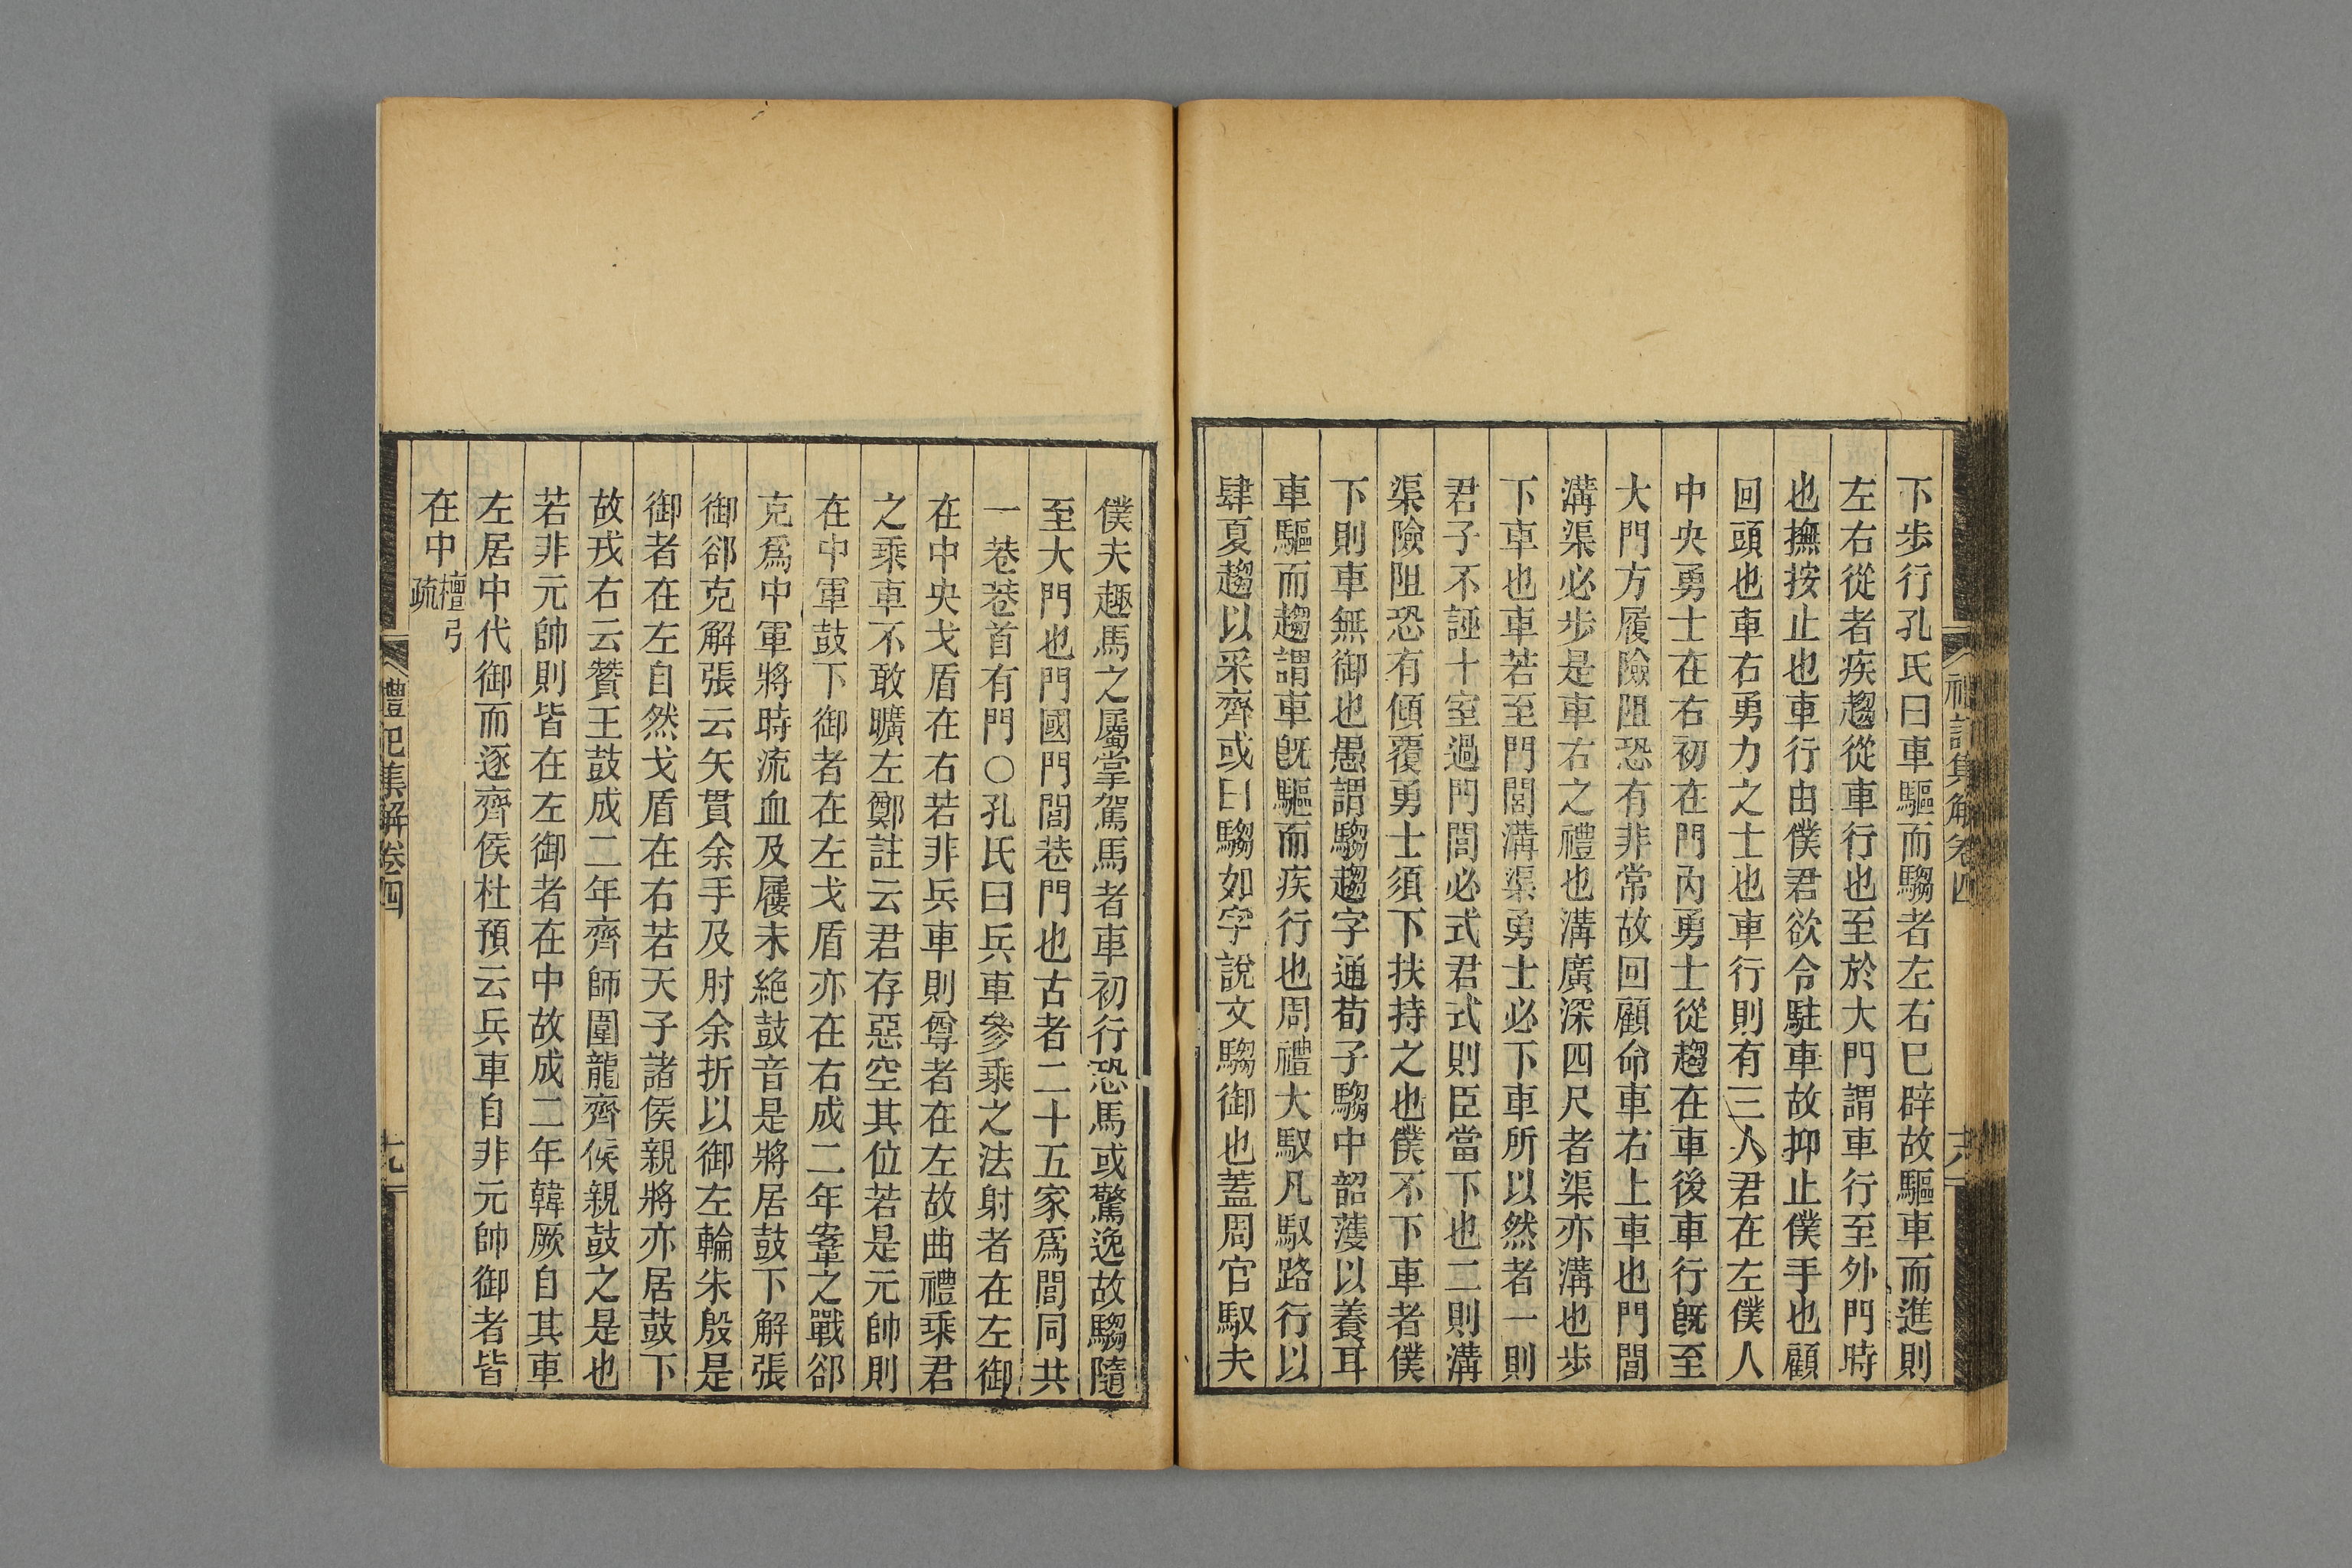 禮記集解卷四
下步行孔氏曰車驅而騶者左右已辟故驅車而進則
左右從者疾趨從車行也至於大門謂車行至外門時
也撫按止也車行由僕君欲令駐車故抑止僕手也顧
回頭也車右勇力之士也車行則有三人君在左僕人
中央勇士在右初在門內勇士從趨在車後車行旣至
大門方履險阻恐有非常故回顧命車右上車也門閭
溝渠必步是車右之禮也溝廣深四尺者渠亦溝也步
下車也車若至門閭溝渠勇士必下車所以然者一則
君子不誣十室過門閭必式君式則臣當下也二則溝
渠險阻恐有傾覆勇士須下扶持之也僕不下車者僕
下則車無御也愚謂騶趨字通荀子騶中韶濩以養耳
車驅而趨謂車旣驅而疾行也周禮大馭凡馭路行以
肆夏趨以采齊或曰騶如字說文騶御也蓋周官馭夫
僕夫趣馬之屬掌駕馬者車初行恐馬或驚逸故騶隨
至大門也門國門閭巷門也古者二十五家爲閭同共
一巷巷首有門○孔氏曰兵車參乘之法射者在左御
在中央戈盾在右若非兵車則尊者在左故曲禮乘君
之乘車不敢曠左鄭註云君存惡空其位若是元帥則
在中軍鼓下御者在左戈盾亦在右成二年鞌之戰郤
克爲中軍將時流血及屨未絕鼓音是將居鼓下解張
御郤克解張云矢貫余手及肘余折以御左輪朱殷是
御者在左自然戈盾在右若天子諸侯親將亦居鼓下
故戎右云贊王鼓成二年齊師圍龍齊侯親鼓之是也
若非元帥則皆在左御者在中故成二年韓厥自其車
左居中代御而逐齊侯杜預云兵車自非元帥御者皆
在中檀弓疏
禮記集解卷四
十九